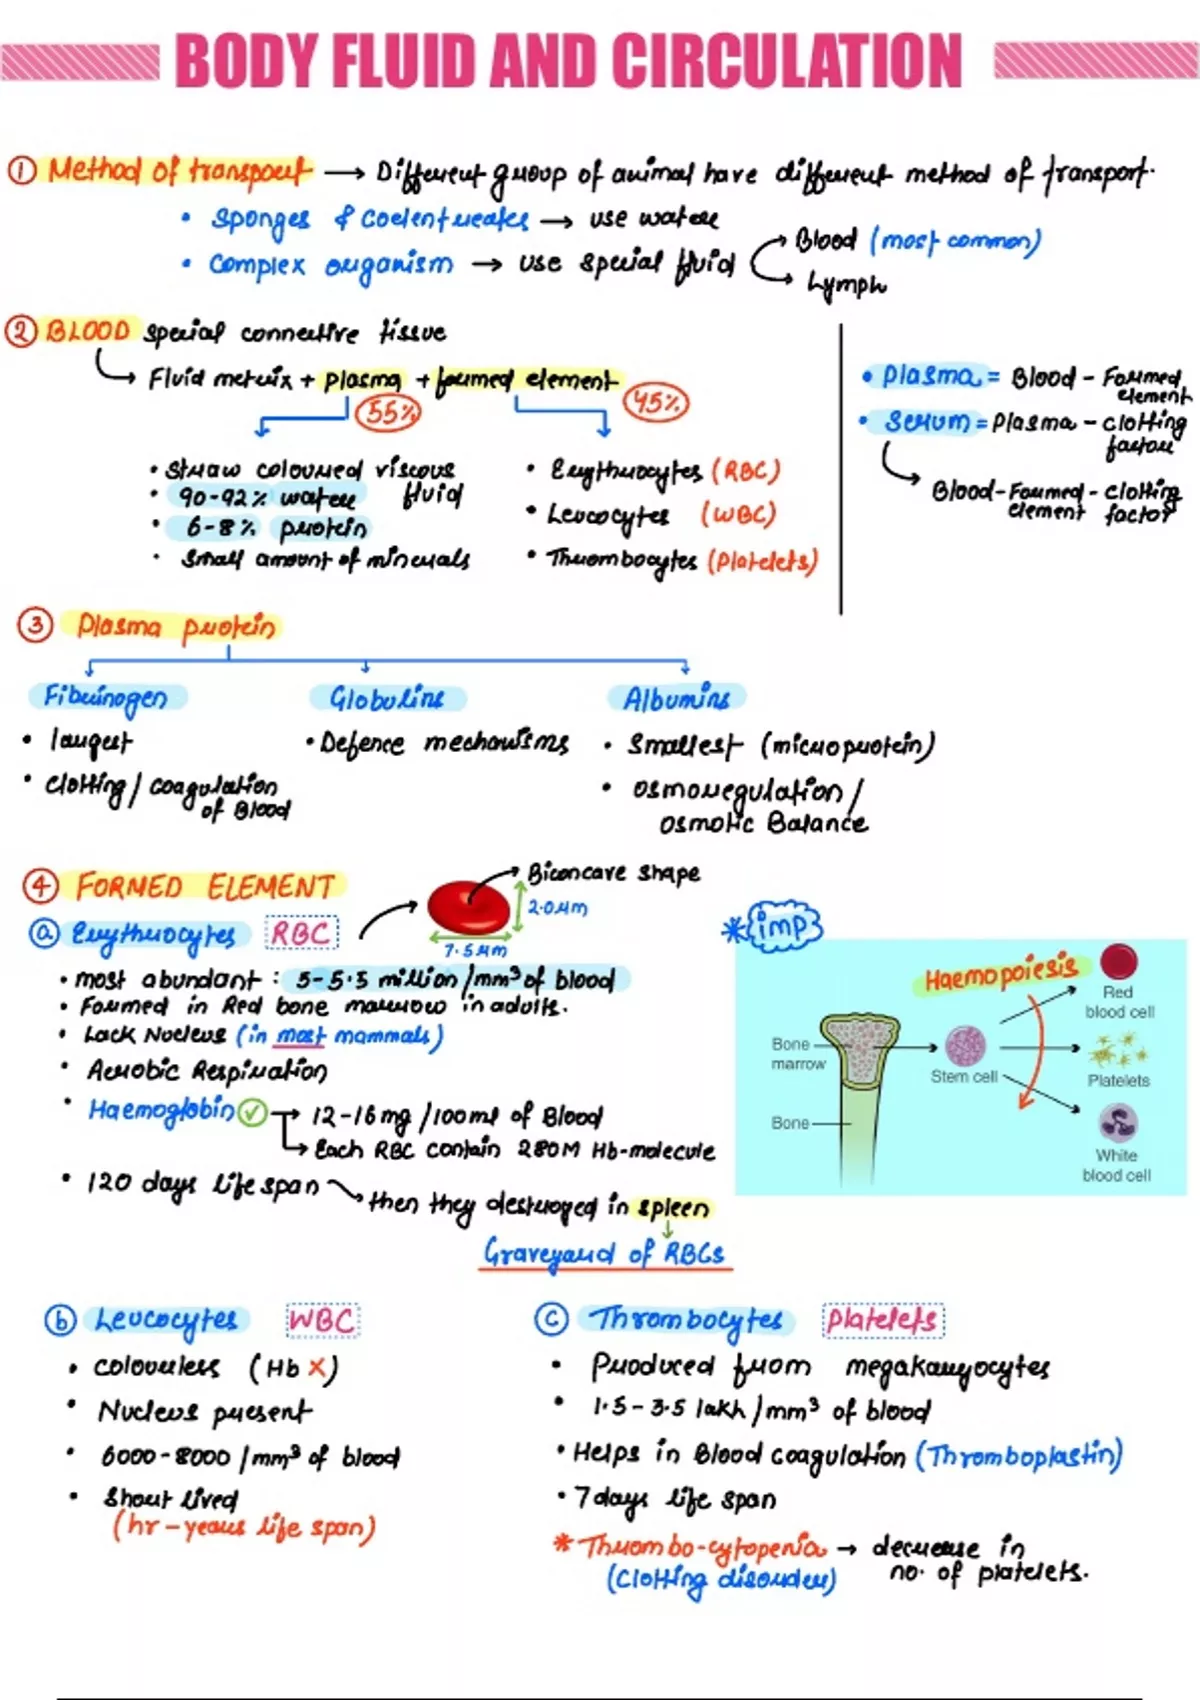 BODY FLUID AND CIRCULATION
① Method of transport → Different group of animal have different method of transport.
• Sponges & Coelentreates → use water
• Complex organism → use special fluid → Blood (most common)
→ Lymph
② BLOOD special connective tissue
→ Fluid metrix + plasma + formed element
55%
45%
• Straw coloured viscous fluid
• 90-92% water
• 6-8% protein
• Small amount of minerals
• Erythrocytes (RBC)
• Leucocytes (WBC)
• Thrombocytes (Platelets)
• Plasma = Blood - Formed element
• Serum = Plasma - clotting factore
→ Blood - Formed element - clotting factor
③ Plasma protein
Fibrinogen
• largest
• Clotting / Coagulation of Blood
Globulins
• Defence mechanisms
Albumins
• Smallest (microprotein)
• Osmoregulation /
Osmotic Balance
④ FORMED ELEMENT
→ Biconcave shape
2.0μm
7.5μm
ⓐ Erythrocytes RBC
• most abundant : 5-5.5 million /mm³ of blood
• Formed in Red bone marrow in adults.
• Lack Nucleus (in most mammals)
• Aerobic Respiration
• Haemoglobin ✓ → 12-16 mg /100 ml of Blood
→ Each RBC contain 280M Hb-molecule
• 120 days life span → then they destroyed in spleen
Graveyard of RBCs
*imp
Haemopoiesis
Bone marrow
Bone
Stem cell
Red blood cell
Platelets
White blood cell
ⓑ Leucocytes WBC
• Colourless (Hb ×)
• Nucleus present
• 6000-8000 /mm³ of blood
• Short lived
(hr - years life span)
ⓒ Thrombocytes Platelets
• Produced from megakaryocytes
• 1.5-3.5 lakh /mm³ of blood
• Helps in Blood coagulation (Thromboplastin)
• 7 days life span
* Thrombo-cytopenia → decrease in no. of platelets.
(Clotting disorder)